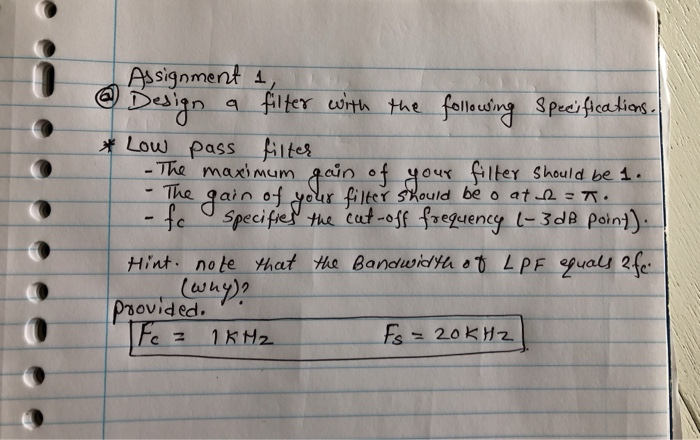 Assignment 1,
(a) Design a filter with the following Specifications.
* Low pass filter
- The maximum gain of your filter should be 1.
- The gain of your filter should be 0 at Ω = π.
- fc specifies the cut-off frequency (-3dB point).
Hint. note that the Bandwidth of LPF equals 2fc.
(why)?
provided.
Fc = 1KHz Fs = 20KHz